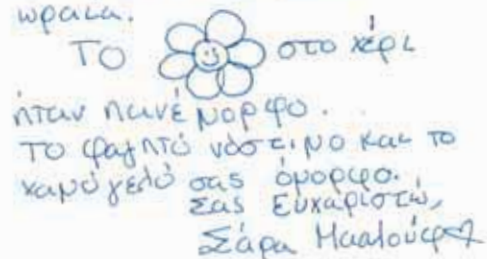 ωραια.
ΤΟ στο χέρι
ήταν πανέμορφο.
ΤΟ φαγητό νόστιμο και το
χαμόγελό σας όμορφο.
Σας Ευχαριστώ,
Σάρα Μααλούφ